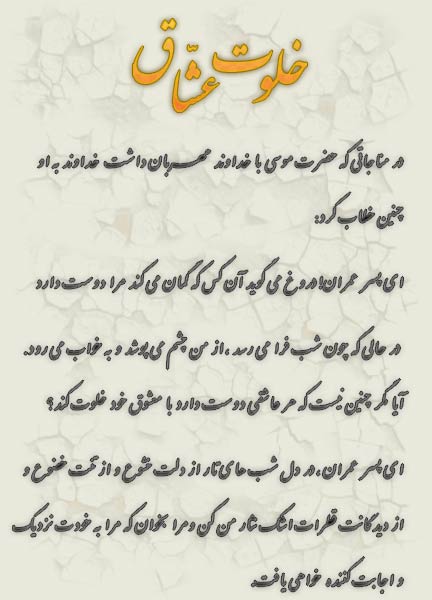 خلوت عشّاق
در مناجاتی که حضرت موسی با خداوند مهربان داشت خداوند به او
چنین خطاب کرد:
ای پسر عمران! دروغ می گوید آن کس که گمان می کند مرا دوست دارد
در حالی که چون شب فرا می رسد ، از من چشم می پوشد و به خواب می رود.
آیا مگر چنین نیست که هر عاشقی دوست دارد با معشوق خود خلوت کند؟
ای پسر عمران، در دل شب های تار از دلت خشوع و از تنت خضوع و
از دیدگانت قطرات اشک نثار من کن و مرا بخوان که مرا به خودت نزدیک
و اجابت کننده خواهی یافت.